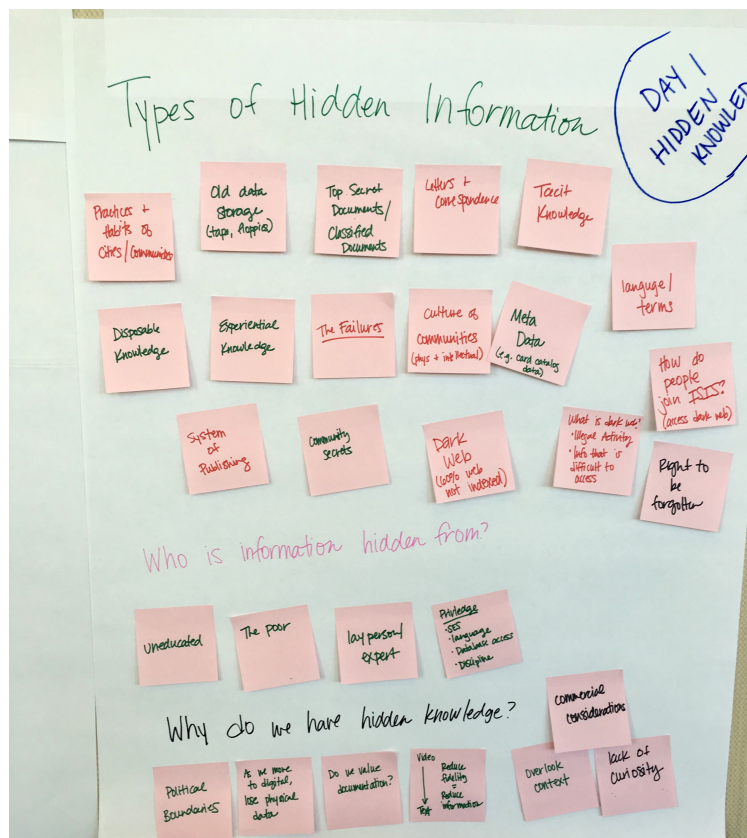 Types of Hidden Information
DAY 1
HIDDEN
KNOWLED
Practices +
Habits of
Cities/Communities
Old data
storage
(taps, floppies)
Top Secret
Documents/
Classified
Documents
Letters +
Correspondence
Tacit
Knowledge
languge/
terms
Disposable
Knowledge
Experiential
Knowledge
The Failures
Culture of
Communities
(phys + intellectual)
Meta
Data
(e.g. card catalog
data)
How do
people
join ISIS?
(access dark web)
System
of
Publishing
Community
secrets
Dark
Web
(60% web
not indexed)
What is dark web?
• Illegal Activity
• Info that is
difficult to
access
Right to
be
forgotten
Who is information hidden from?
uneducated
The poor
lay person/
expert
Priviledge
• SES
• language
• Database access
• Discipline
Why do we have hidden knowledge?
commercial
considerations
Political
Boundaries
As we move
to digital,
lose physical
data
Do we value
documentation?
Video
Text
Reduce
fidelity
=
Reduce
information
overlook
context
lack of
curiosity